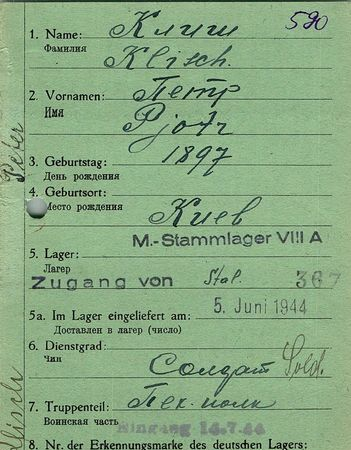 590
1. Name: Клиш
Фамилия
Klisch.
2. Vornamen: Петр
Имя
Pjotr
3. Geburtstag: 1897
День рождения
4. Geburtsort:
Место рождения
Киев
M.-Stammlager VIII A
5. Lager:
Лагерь
Zugang von Stal. 367
5. Juni 1944
5a. Im Lager eingeliefert am:
Доставлен в лагерь (число)
6. Dienstgrad:
Чин
Солдат Sold.
7. Truppenteil: Пех. полк
Воинская часть
Eingang 14.7.44
8. Nr. der Erkennungsmarke des deutschen Lagers:
Peter
Klisch